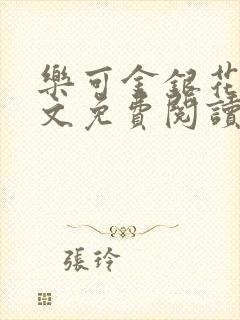 樂可金銀花
文免費閱讀
張玲